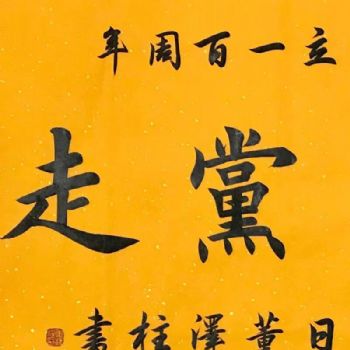 立一百周年
黨走
日董澤柱書